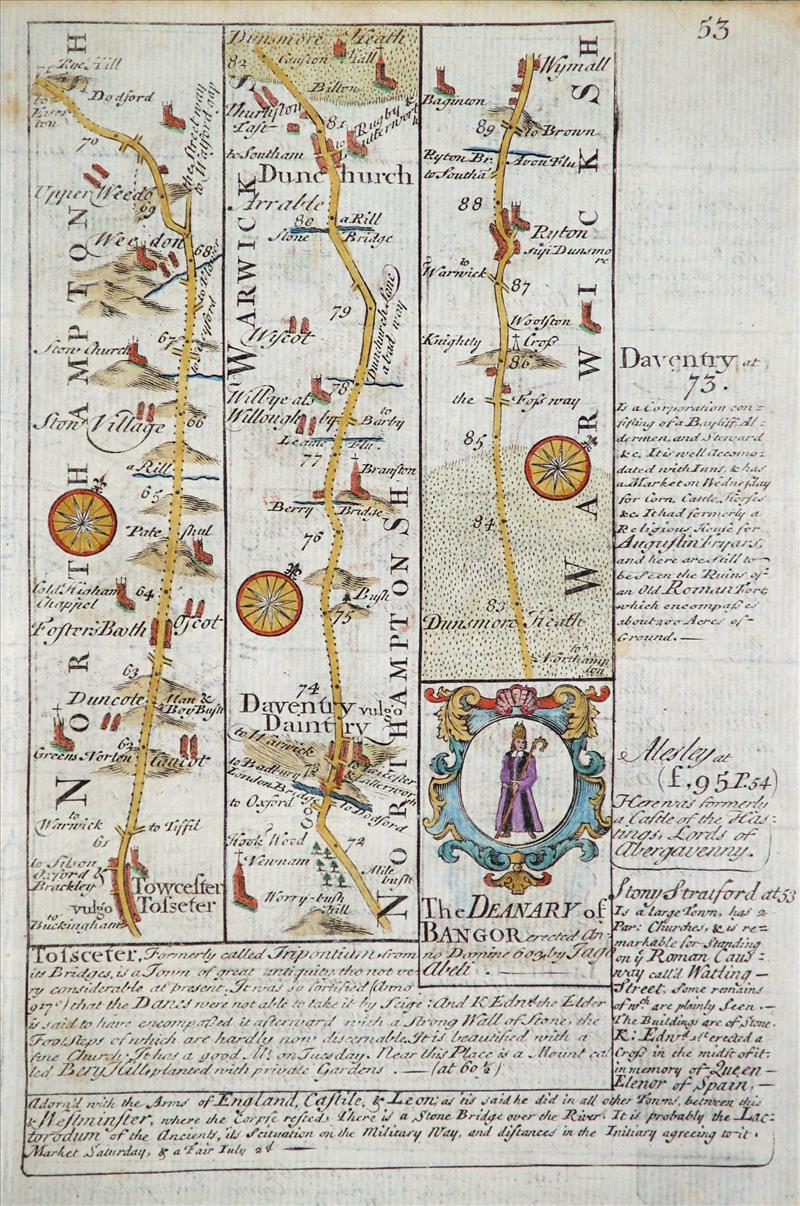 53
NORTHAMPTON SH
Rye Hill
Dodford
70
the Street way
to Watford gap
Upper Weedo
69
Weedon
68
67
Stow Church
Stow Village
66
a Rill
65
Pate shul
Cold Higham
Chappel
64
Foster's Booth
Oscot
63
Duncote
Man &
Boy Bush
Greens Norton
62
Caucot
to
Warwick
to Tiffil
61
to Silson
Oxford &
Brackley
Towcester
vulgo Tosseter
to
Buckingham
WARWICK S
Dunsmore Heath
82
Causton Hall
Bilton
Thurlston
East
81
to Rugby &
Lutterworth
to Southam
Dunchurch
Arrable
80
a Rill
Stone Bridge
79
Dunchurch Lane
a bad way
Wilcot
78
Willbye al.
Willoughby
to
Barby
Leame Flu.
77
Branston
Berry Bridge
76
Bush
75
74
Daventry vulgo
Daintry
to Warwick
to Leicester
& Lutterworth
to Badbury
73
London Bridge
to Oxford
to Dodford
72
Hook Wood
Newnam
Mile
bush
Worry-bush
hill
NORTHAMPTON SH
WARWICK SH
Wymall
Baginton
89
to Brown
Ryton Br.
Avon Flu
to Southa
88
Ryton
sup Dunsmo
re
to
Warwick
87
Woolston
Knightly Cross
86
the Foss way
85
84
83
Dunsmore Heath
to
Northamp
ton
The DEANARY of
BANGOR erected An-
no Domine 603, by Jago
Abeli.
Daventry at
73.
Is a Corporation con=
sisting of a Bayliff Al=
dermen, and Steward
&c. It is well accomo=
dated with Inns, & has
a Market on Wednesday
for Corn, Cattle, Horses
&c. It had formerly a
Religious House for
Augustin Fryars,
and here are still to
be Seen the Ruins of
an Old Roman Fort,
which encompasses
about 200 Acres of
Ground. —
Alesley at
(f, 95 P. 54)
Here was formerly
a Castle of the Has=
tings, Lords of
Abergavenny.
Stony Stratford at 53
Is a large Town, has 2
Par: Churches, & is re=
markable for Standing
on y Roman Caus=
way call'd Watling —
Street, Some remains
of wch are plainly Seen. —
The Buildings are of Stone.
K. Edwd 1st erected a
Cross in the midst of it
in memory of Queen —
Elenor of Spain, —
Tosseter, Formerly called Tripontium from
its Bridges, is a Town of great antiquity tho not ve=
ry considerable at present. It was so fortified (Anno
917) that the Danes were not able to take it by Seige: And K Edwd the Elder
is said to have encompassed it afterward with a Strong Wall of Stone, the
Footsteps of which are hardly now discernable. It is beautified with a
fine Church, It has a good Mt. on Tuesday. Near this Place is a Mount cal
led Bery Hill, planted with private Gardens. — (at 60½)
Adorn'd with the Arms of England, Castile, & Leon, as 'tis said he did in all other Towns, between this
& Westminster, where the Corpse rested. There is a Stone Bridge over the River. It is probably the Lac-
torodum of the Ancients, its Scituation on the Military Way, and distances in the Initiary agreeing to it.
Market Saturday, & a Fair July 2d —